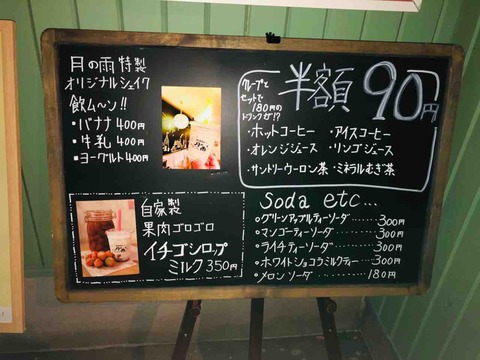 月の雨 特製
オリジナルシェイク
飲ム〜ン!!
・バナナ 400円
・牛乳 400円
・ヨーグルト 400円
自家製
果肉ゴロゴロ
イチゴシロップ
ミルク 350円
クレープと
セットで
180円の
ドリンクが!?
半額 90円
・ホットコーヒー ・アイスコーヒー
・オレンジジュース ・リンゴジュース
・サントリーウーロン茶 ・ミネラルむぎ茶
soda etc...
○グリーンアップルティーソーダ……300円
○マンゴーティーソーダ………300円
○ライチティーソーダ………300円
○ホワイトショコラミルクティー……300円
○メロンソーダ………180円